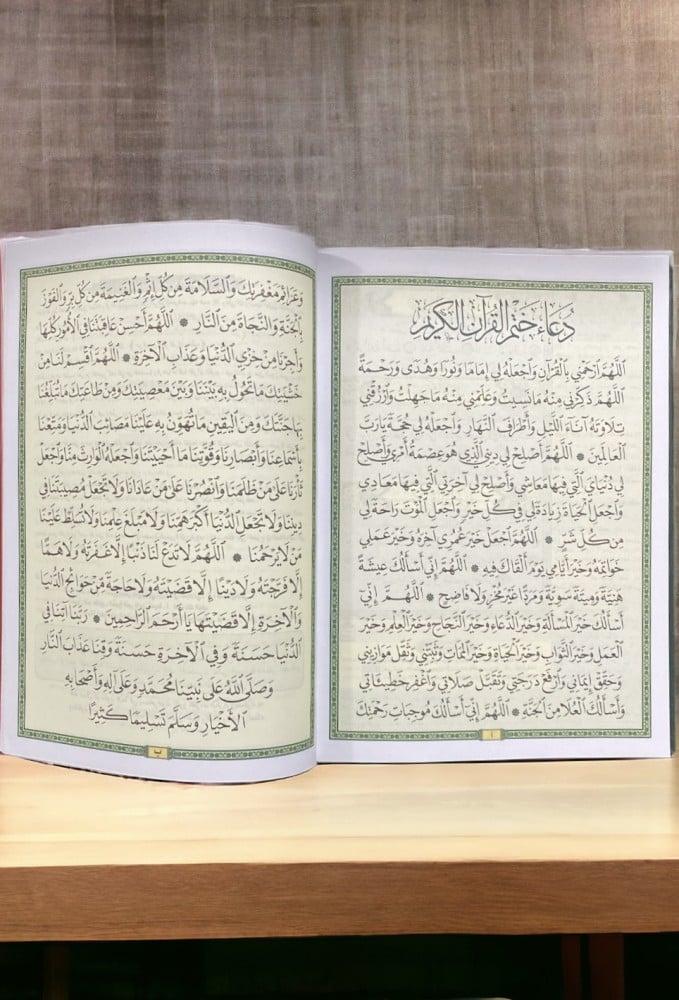 دُعَاءُ خَتْمِ الْقُرْآنِ الْكَرِيمِ
اللَّهُمَّ ارْحَمْنِي بِالْقُرْآنِ وَاجْعَلْهُ لِي إِمَامًا وَنُورًا وَهُدًى وَرَحْمَةً
اللَّهُمَّ ذَكِّرْنِي مِنْهُ مَا نَسِيتُ وَعَلِّمْنِي مِنْهُ مَا جَهِلْتُ وَارْزُقْنِي
تِلَاوَتَهُ آنَاءَ اللَّيْلِ وَأَطْرَافَ النَّهَارِ وَاجْعَلْهُ لِي حُجَّةً يَا رَبَّ
الْعَالَمِينَ * اللَّهُمَّ أَصْلِحْ لِي دِينِي الَّذِي هُوَ عِصْمَةُ أَمْرِي وَأَصْلِحْ
لِي دُنْيَايَ الَّتِي فِيهَا مَعَاشِي وَأَصْلِحْ لِي آخِرَتِي الَّتِي فِيهَا مَعَادِي
وَاجْعَلِ الْحَيَاةَ زِيَادَةً لِي فِي كُلِّ خَيْرٍ وَاجْعَلِ الْمَوْتَ رَاحَةً لِي
مِنْ كُلِّ شَرٍّ * اللَّهُمَّ اجْعَلْ خَيْرَ عُمْرِي آخِرَهُ وَخَيْرَ عَمَلِي
خَوَاتِمَهُ وَخَيْرَ أَيَّامِي يَوْمَ أَلْقَاكَ فِيهِ * اللَّهُمَّ إِنِّي أَسْأَلُكَ عِيشَةً
هَنِيَّةً وَمِيتَةً سَوِيَّةً وَمَرَدًّا غَيْرَ مُخْزٍ وَلَا فَاضِحٍ * اللَّهُمَّ إِنِّي
أَسْأَلُكَ خَيْرَ الْمَسْأَلَةِ وَخَيْرَ الدُّعَاءِ وَخَيْرَ النَّجَاحِ وَخَيْرَ الْعِلْمِ وَخَيْرَ
الْعَمَلِ وَخَيْرَ الثَّوَابِ وَخَيْرَ الْحَيَاةِ وَخَيْرَ الْمَمَاتِ وَثَبِّتْنِي وَثَقِّلْ مَوَازِينِي
وَحَقِّقْ إِيمَانِي وَارْفَعْ دَرَجَتِي وَتَقَبَّلْ صَلَاتِي وَاغْفِرْ خَطِيئَاتِي
وَأَسْأَلُكَ الْعُلَا مِنَ الْجَنَّةِ * اللَّهُمَّ إِنِّي أَسْأَلُكَ مُوجِبَاتِ رَحْمَتِكَ
أ
وَعَزَائِمَ مَغْفِرَتِكَ وَالسَّلَامَةَ مِنْ كُلِّ إِثْمٍ وَالْغَنِيمَةَ مِنْ كُلِّ بِرٍّ وَالْفَوْزَ
بِالْجَنَّةِ وَالنَّجَاةَ مِنَ النَّارِ * اللَّهُمَّ أَحْسِنْ عَاقِبَتَنَا فِي الْأُمُورِ كُلِّهَا
وَأَجِرْنَا مِنْ خِزْيِ الدُّنْيَا وَعَذَابِ الْآخِرَةِ * اللَّهُمَّ اقْسِمْ لَنَا مِنْ
خَشْيَتِكَ مَا تَحُولُ بِهِ بَيْنَنَا وَبَيْنَ مَعْصِيَتِكَ وَمِنْ طَاعَتِكَ مَا تُبَلِّغُنَا
بِهَا جَنَّتَكَ وَمِنَ الْيَقِينِ مَا تُهَوِّنُ بِهِ عَلَيْنَا مَصَائِبَ الدُّنْيَا وَمَتِّعْنَا
بِأَسْمَاعِنَا وَأَبْصَارِنَا وَقُوَّتِنَا مَا أَحْيَيْتَنَا وَاجْعَلْهُ الْوَارِثَ مِنَّا وَاجْعَلْ
ثَأْرَنَا عَلَى مَنْ ظَلَمَنَا وَانْصُرْنَا عَلَى مَنْ عَادَانَا وَلَا تَجْعَلْ مُصِيبَتَنَا فِي
دِينِنَا وَلَا تَجْعَلِ الدُّنْيَا أَكْبَرَ هَمِّنَا وَلَا مَبْلَغَ عِلْمِنَا وَلَا تُسَلِّطْ عَلَيْنَا
مَنْ لَا يَرْحَمُنَا * اللَّهُمَّ لَا تَدَعْ لَنَا ذَنْبًا إِلَّا غَفَرْتَهُ وَلَا هَمًّا
إِلَّا فَرَّجْتَهُ وَلَا دَيْنًا إِلَّا قَضَيْتَهُ وَلَا حَاجَةً مِنْ حَوَائِجِ الدُّنْيَا
وَالْآخِرَةِ إِلَّا قَضَيْتَهَا يَا أَرْحَمَ الرَّاحِمِينَ * رَبَّنَا آتِنَا فِي
الدُّنْيَا حَسَنَةً وَفِي الْآخِرَةِ حَسَنَةً وَقِنَا عَذَابَ النَّارِ
وَصَلَّى اللَّهُ عَلَى نَبِيِّنَا مُحَمَّدٍ وَعَلَى آلِهِ وَأَصْحَابِهِ
الْأَخْيَارِ وَسَلَّمَ تَسْلِيمًا كَثِيرًا
ب